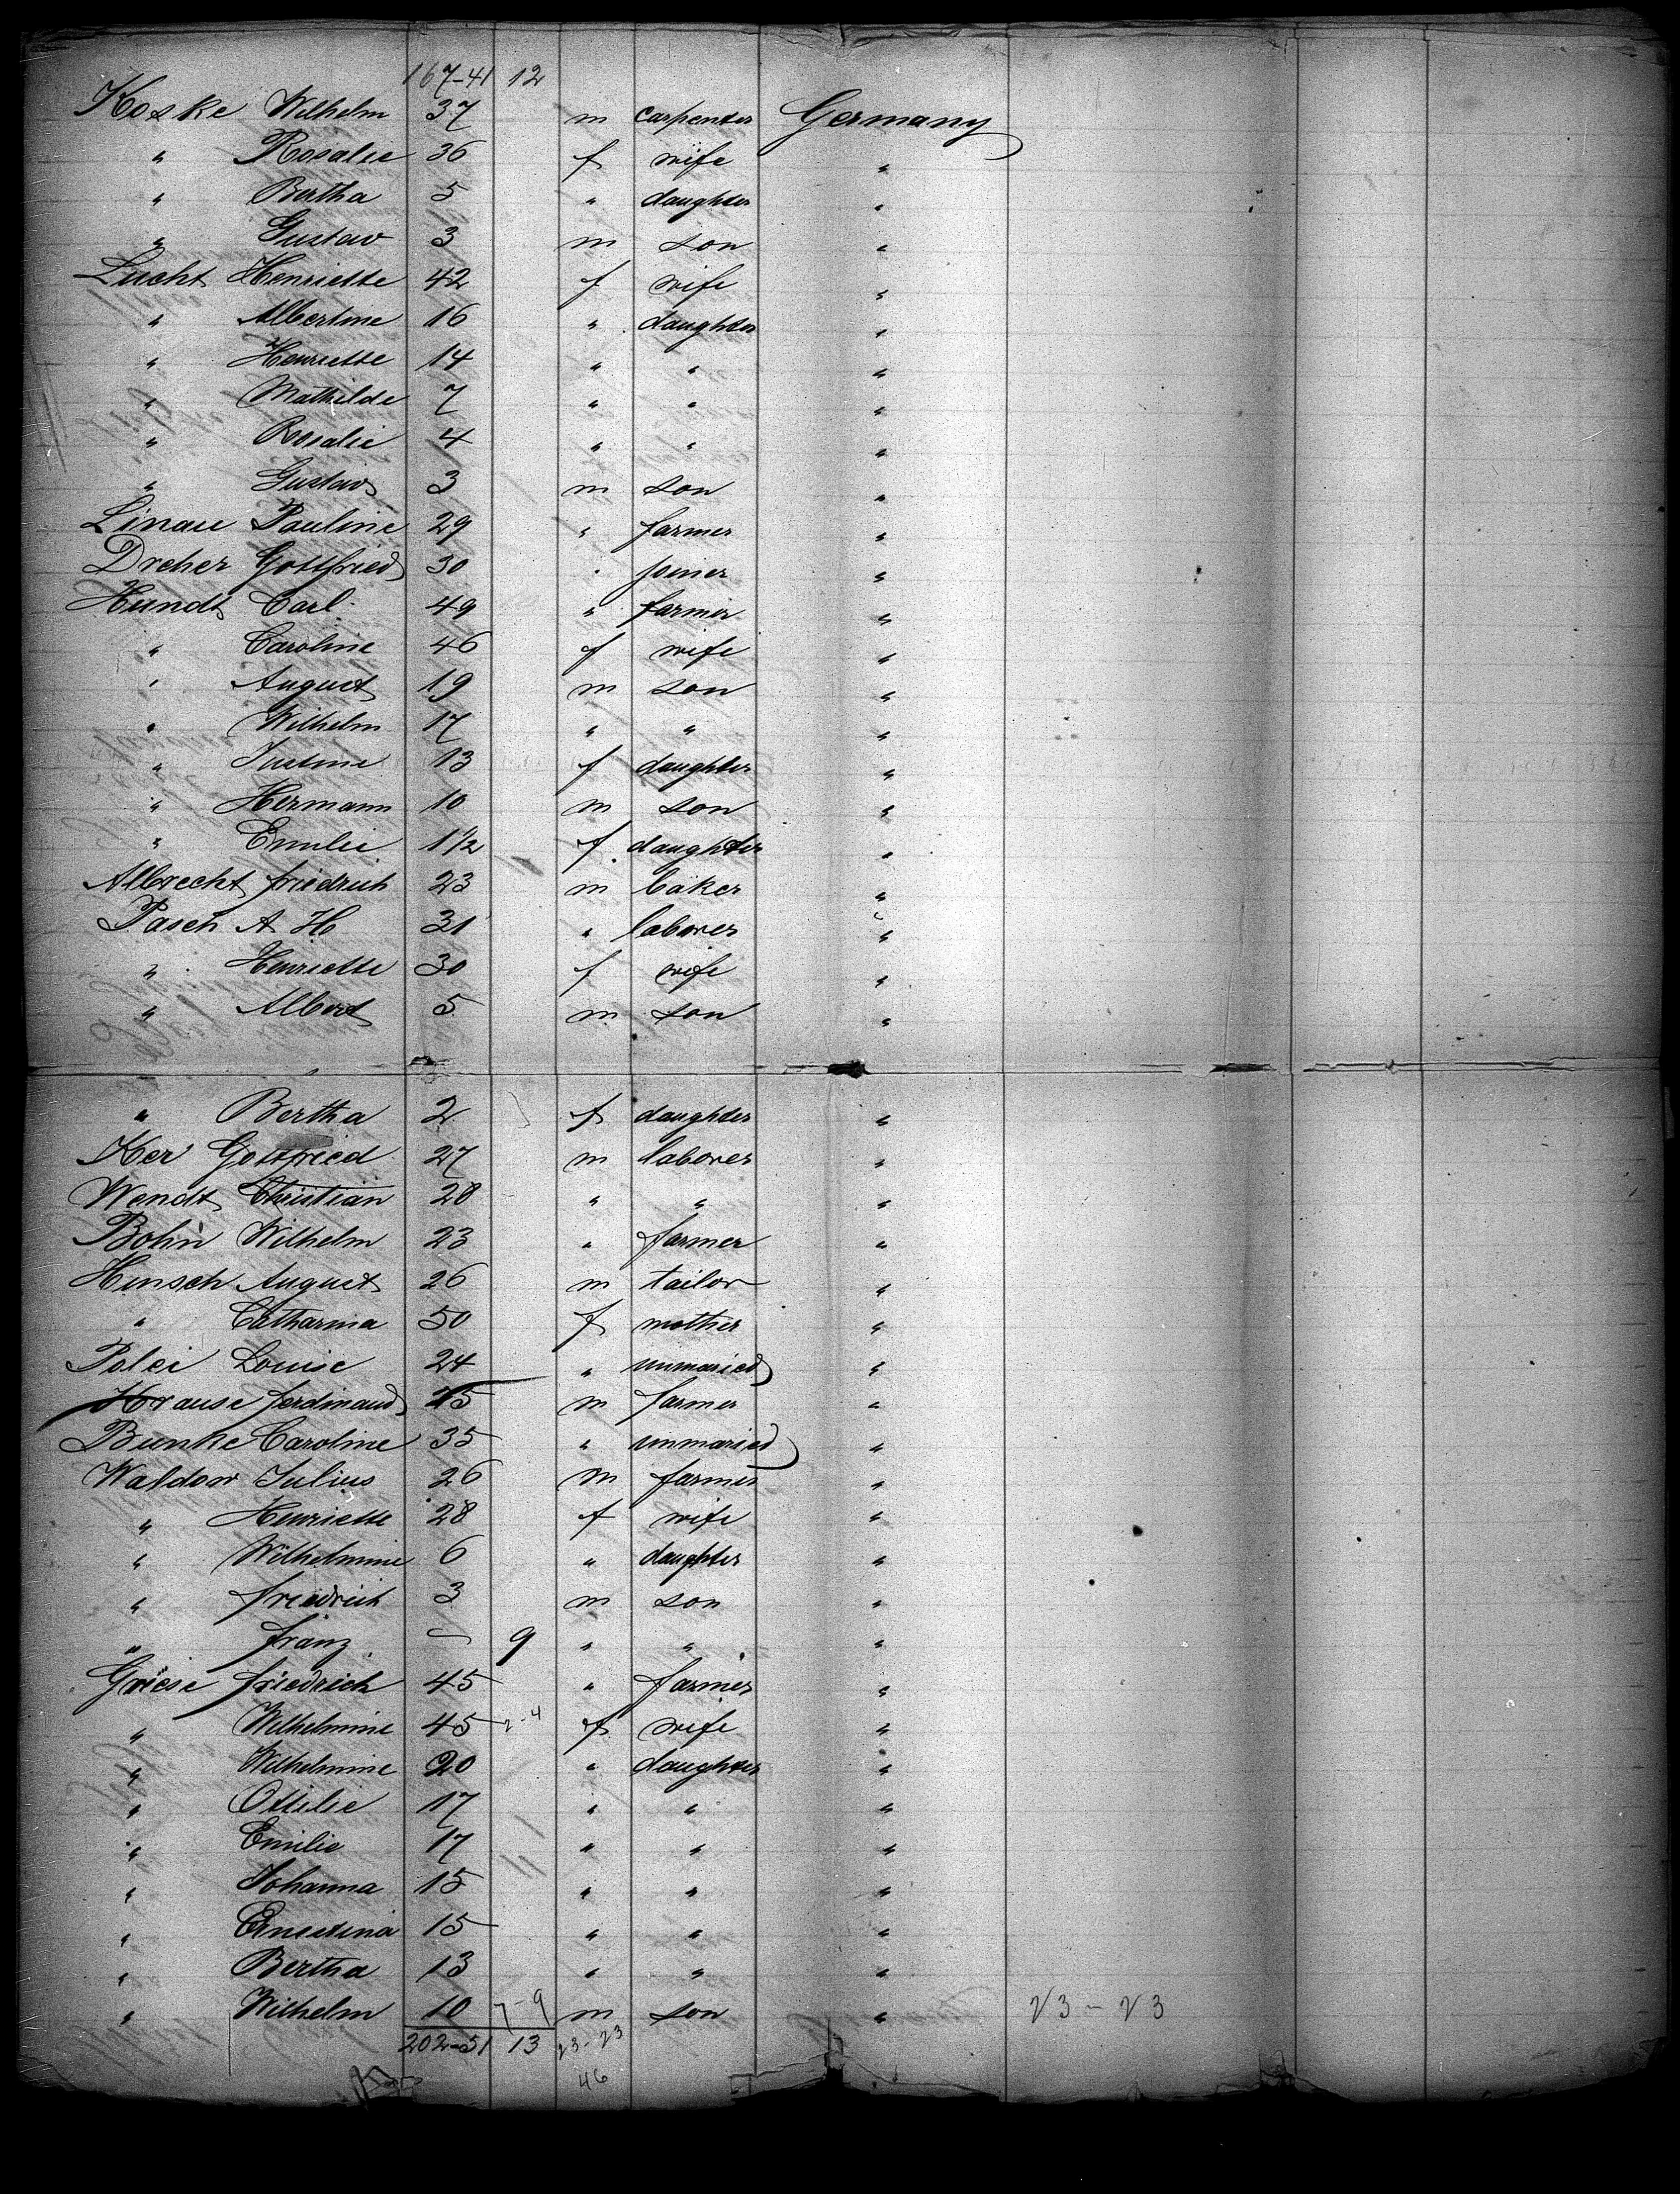 167-41 12
Koske Wilhelm 37 m carpenter Germany
" Rosalie 36 f wife "
" Bertha 5 " daughter "
" Gustav 3 m son "
Lucht Henriette 42 f wife "
" Albertine 16 " daughter "
" Henriette 14 " " "
" Mathilde 7 " " "
" Rosalie 4 " " "
" Gustav 3 m son "
Linau Pauline 29 " farmer "
Dreher Gottfried 30 " joiner "
Hundt Carl 49 " farmer "
" Caroline 46 f wife "
" August 19 m son "
" Wilhelm 17 " " "
" Justine 13 f daughter "
" Hermann 10 m son "
" Emilie 1 1/2 f daughter "
Albrecht Friedrich 23 m baker "
Pasch A. H 31 " laborer "
" Henriette 30 f wife "
" Albert 5 m son "
" Bertha 2 f daughter "
Ker Gottfried 27 m laborer "
Wendt Christian 28 " " "
Bohn Wilhelm 23 " farmer "
Hinsch August 26 m tailor "
" Catharina 50 f mother "
Polei Louise 24 " unmaried "
Krause Ferdinand 25 m farmer "
Bunke Caroline 35 " unmaried "
Waldow Julius 26 m farmer "
" Henriette 28 f wife "
" Wilhelmine 6 " daughter "
" Friedrich 3 m son "
" Franz - 9 " " "
Griese Friedrich 45 " farmer "
" Wilhelmine 45 2-4 f wife "
" Wilhelmine 20 " daughter "
" Ottilie 17 " " "
" Emilie 17 " " "
" Johanna 15 " " "
" Ernestina 15 " " "
" Bertha 13 " " "
" Wilhelm 10 7-9 m son " 23-23
202-51 13 23-23
46